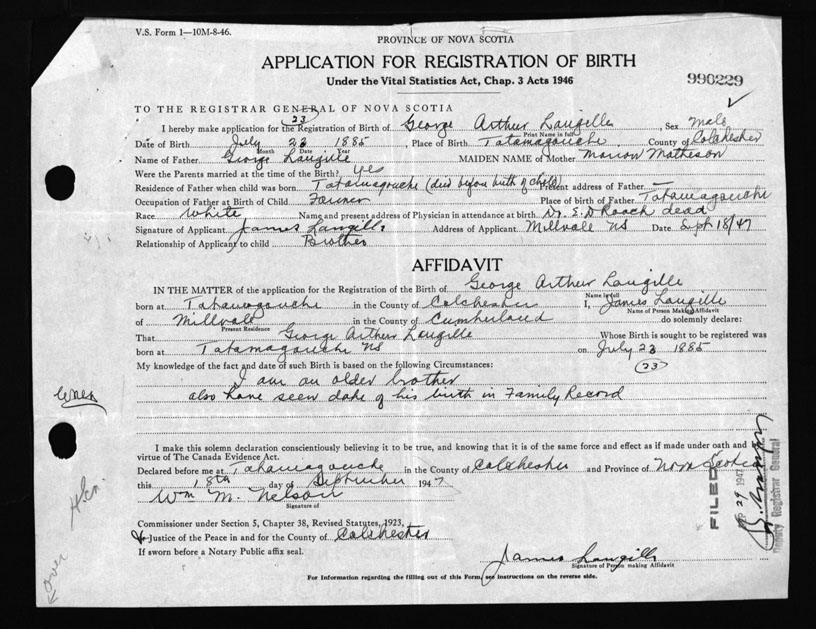 V.S. Form 1—10M-8-46.
PROVINCE OF NOVA SCOTIA
APPLICATION FOR REGISTRATION OF BIRTH
Under the Vital Statistics Act, Chap. 3 Acts 1946
990229
TO THE REGISTRAR GENERAL OF NOVA SCOTIA
23
I hereby make application for the Registration of Birth of George Arthur Langille, Sex Male
Print Name in full
Date of Birth July 23 1885, Place of Birth Tatamagouche County of Colchester
Month Date Year
Name of Father George Langille MAIDEN NAME of Mother Marion Matheson
Were the Parents married at the time of the Birth? yes
Residence of Father when child was born Tatamagouche (died before birth of child) Present address of Father —
Occupation of Father at Birth of Child Farmer Place of birth of Father Tatamagouche
Race White Name and present address of Physician in attendance at birth Dr. S. D Roach dead
Signature of Applicant James Langille Address of Applicant Millvale NS Date Sept 18/47
Relationship of Applicant to child Brother
AFFIDAVIT
IN THE MATTER of the application for the Registration of the Birth of George Arthur Langille
born at Tatamagouche in the County of Colchester I, James Langille
Name in full
Name of Person Making Affidavit
of Millvale in the County of Cumberland do solemnly declare:
Present Residence
That George Arthur Langille Whose Birth is sought to be registered was
born at Tatamagouche NS on July 23 1885
23
My knowledge of the fact and date of such Birth is based on the following Circumstances:
I am an older brother
also have seen date of his birth in Family Record
I make this solemn declaration conscientiously believing it to be true, and knowing that it is of the same force and effect as if made under oath and by
virtue of The Canada Evidence Act.
Declared before me at Tatamagouche in the County of Colchester and Province of Nova Scotia
this 18th day of September 1947
Wm M. Nelson
Signature of
Commissioner under Section 5, Chapter 38, Revised Statutes, 1923,
Justice of the Peace in and for the County of Colchester
If sworn before a Notary Public affix seal.
James Langille
Signature of Person making Affidavit
For Information regarding the filling out of this Form, see instructions on the reverse side.
FILED
SEP 29 1947
Deputy Registrar General
over